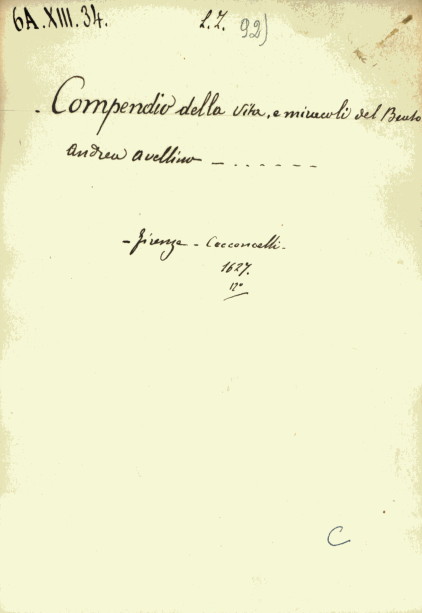 6A.XIII.34.
L.Z. 92)
- Compendio della vita, e miracoli del Beato
Andrea Avellino - . . . . - -
- Firenze - Cecconcelli -
1627.
12°
C